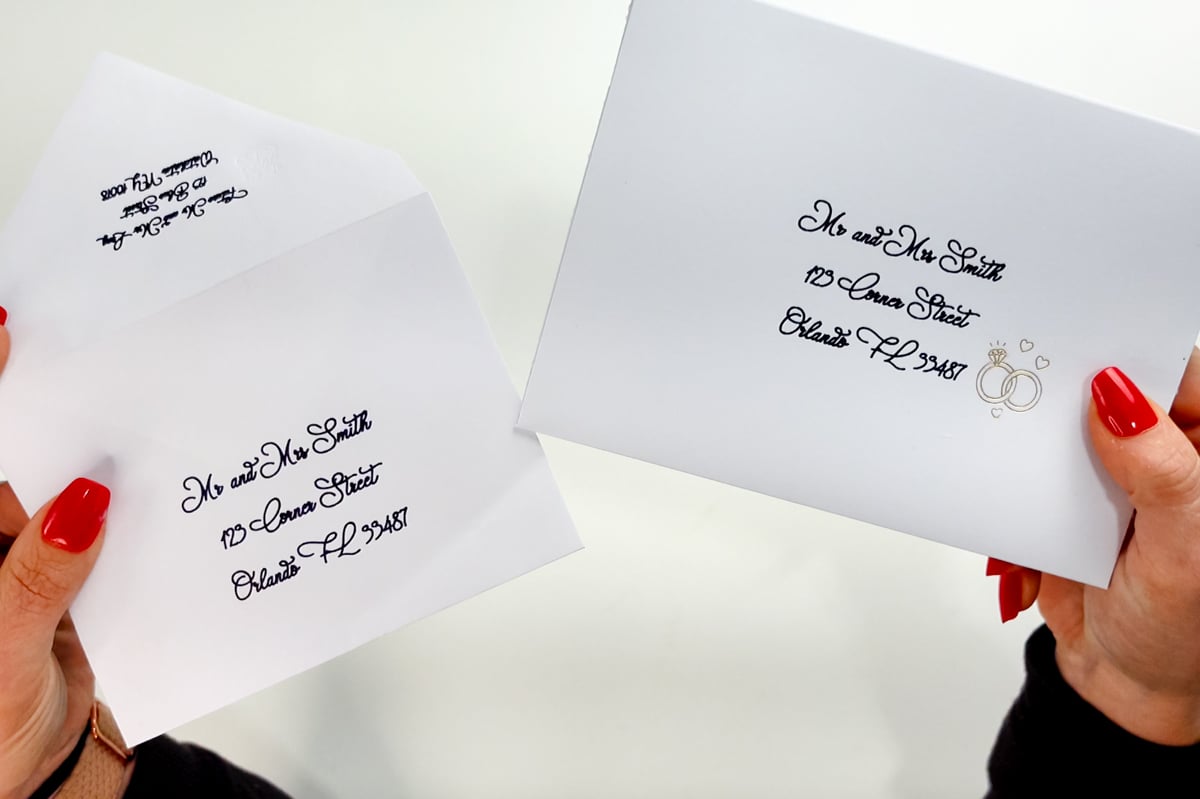 Mr and Mrs Smith
123 Corner Street
Orlando FL 33487
Mr and Mrs Smith
123 Corner Street
Orlando FL 33487
Future Mr and Mrs
NY 10018